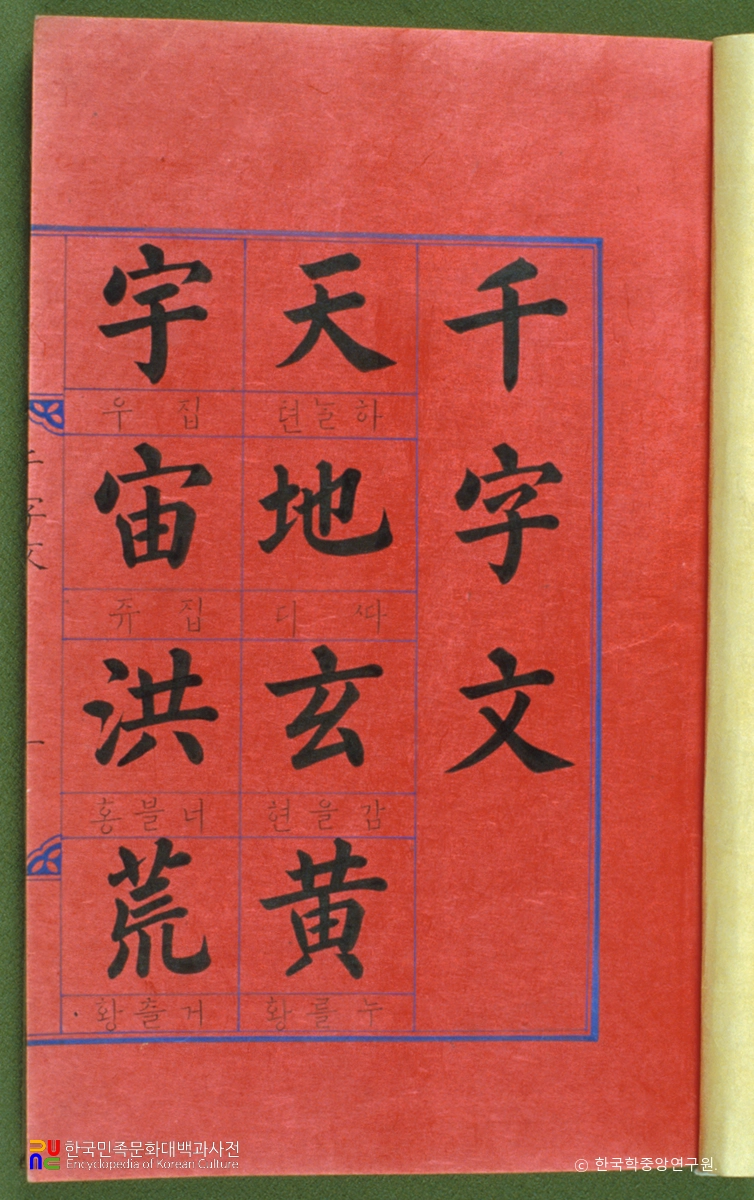 千字文
天
하놀텬
地
따 디
玄
감을현
黄
누를황
宇
집 우
宙
집 쥬
洪
너블홍
荒
거츨황
字文
一
한국민족문화대백과사전
Encyclopedia of Korean Culture
© 한국학중앙연구원.